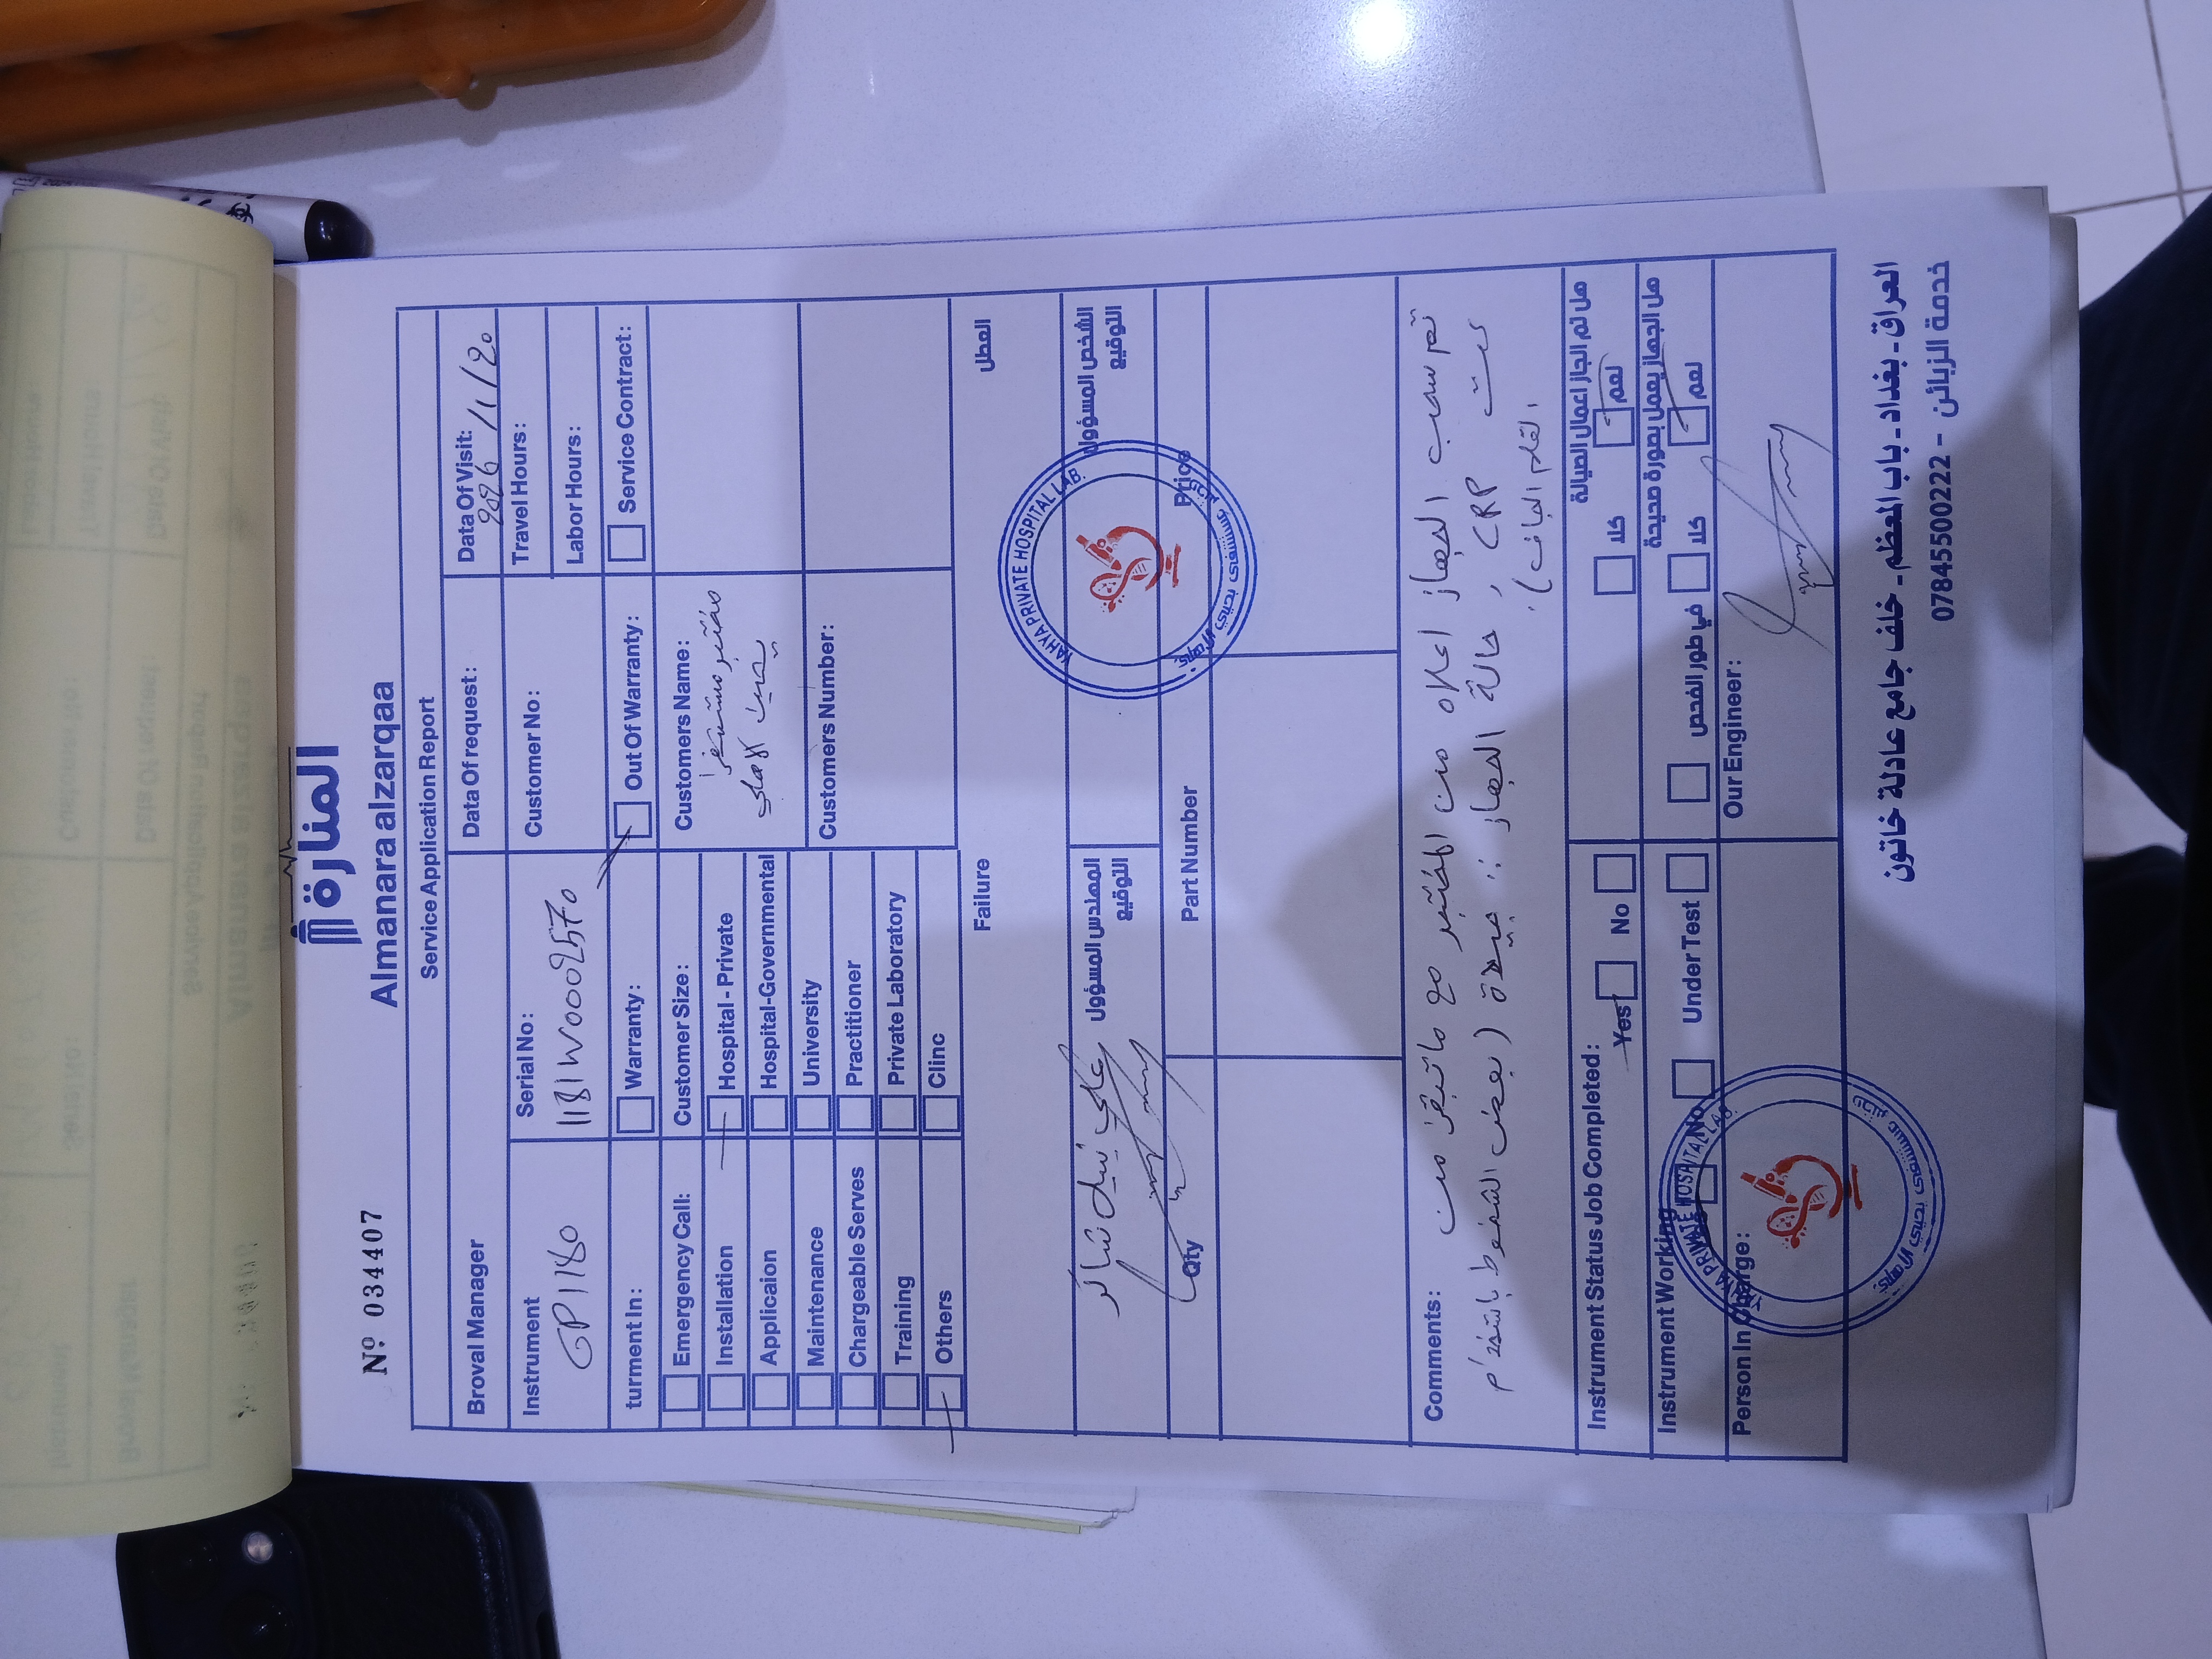 المنارة
Nº 034407
Almanara alzarqaa
Service Application Report
Broval Manager
Data Of request:
Data Of Visit:
2026/1/20
Instrument
GP1180
Serial No:
1181W0002570
Customer No:
Travel Hours:
Labor Hours:
turment In:
Warranty:
Out Of Warranty:
Service Contract:
Emergency Call:
Customer Size:
Customers Name:
مختبر مستشفى
يحيى الاهلي
Installation
Hospital - Private
Applicaion
Hospital-Governmental
Maintenance
University
Chargeable Serves
Practitioner
Customers Number:
Training
Private Laboratory
Others
Clinc
Failure
العطل
المهندس المسؤول
التوقيع
علي نبيل شاكر
الشخص المسؤول
التوقيع
YAHYA PRIVATE HOSPITAL LAB.
Qty
Part Number
Price
Comments:
تم سحب الجهاز اعلاه من المختبر مع ماتبقى من
كت CRP , حالة الجهاز : جيدة (بعض الخطوط باستخدام
القلم الجاف).
Instrument Status Job Completed:
Yes
No
كلا
نعم
هل تم انجاز اعمال الصيانة
Instrument Working
Yes
No
Under Test
في طور الفحص
كلا
نعم
هل الجهاز يعمل بصورة صحيحة
Person In Charge:
Our Engineer:
YAHYA PRIVATE HOSPITAL LAB.
العراق - بغداد - باب المعظم - خلف جامع عادلة خاتون
خدمة الزبائن - 07845500222